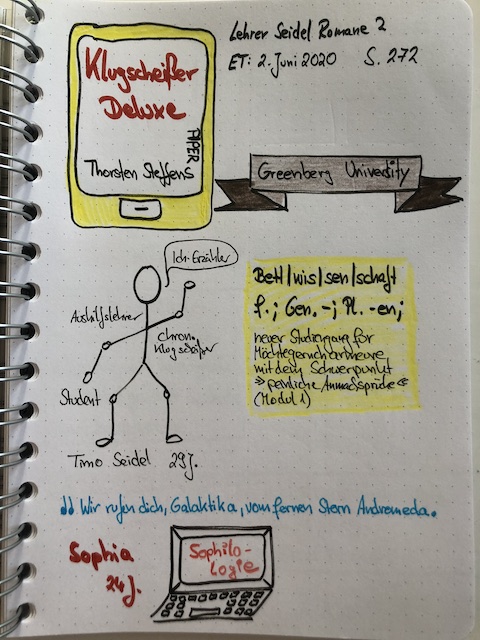 Lehrer Seidel Romane 2
ET: 2. Juni 2020 S. 272
Klugscheißer
Deluxe
PIPER
Thorsten Steffens
Greenberg University
Ich-Erzähler
Aushilfslehrer
chron.
Klugscheißer
Student
Timo Seidel 29 J.
Bett|wis|sen|schaft
f.; Gen. -; Pl. -en;
neuer Studiengang für
Möchtegerncharmeure
mit dem Schwerpunkt
»peinliche Anmachsprüche«
(Modul 1)
♫ Wir rufen dich, Galaktika, vom fernen Stern Andromeda.
Sophia
24 J.
Sophilo-
logie